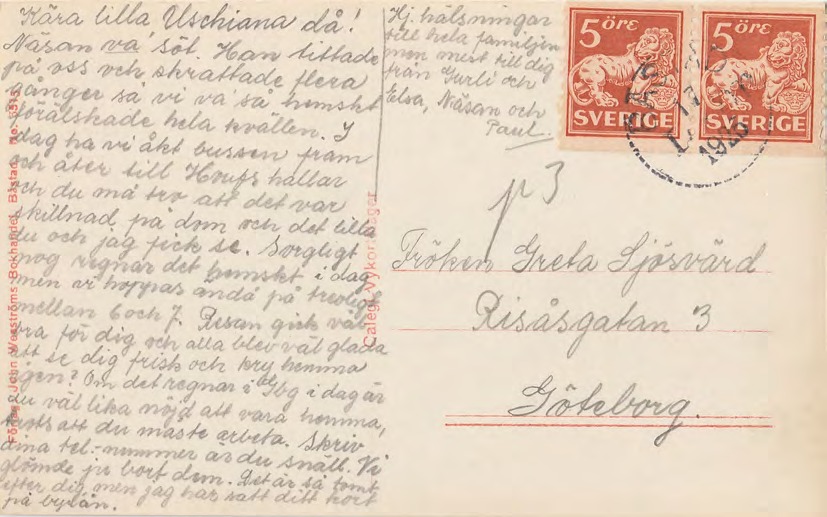 Kära lilla Uschiana då!
Näsan va' söt. Han tittade
på oss och skrattade flera
gånger så vi va' så hemskt
förälskade hela kvällen. I
dag ha vi åkt bussen fram
och åter till Hovs hallar
och du må tro att det var
skillnad på dom och det lilla
du och jag fick se. Sorgligt
nog regnar det hemskt i dag
men vi hoppas ändå på trevligt
mellan 6 och 7. Resan gick väl
bra för dig och alla blev väl glada
att se dig frisk och kry hemma
igen? Om det regnar i Gbg i dag är
du väl lika nöjd att vara hemma,
trots att du måste arbeta. Skriv
dina tel.-nummer är du snäll. Vi
glömde ju bort dem. Det är så tomt
efter dig men jag har satt ditt kort
på byrån.
Hj. hälsningar
till hela familjen
men mest till dig
från Gurli och
Elsa, Näsan och
Paul.
5 ÖRE
SVERIGE
5 ÖRE
SVERIGE
p 3
Fröken Greta Sjösvärd
Risåsgatan 3
Göteborg.
John Wesströms Bokhandel, Båstad
Calegi Vykortslager